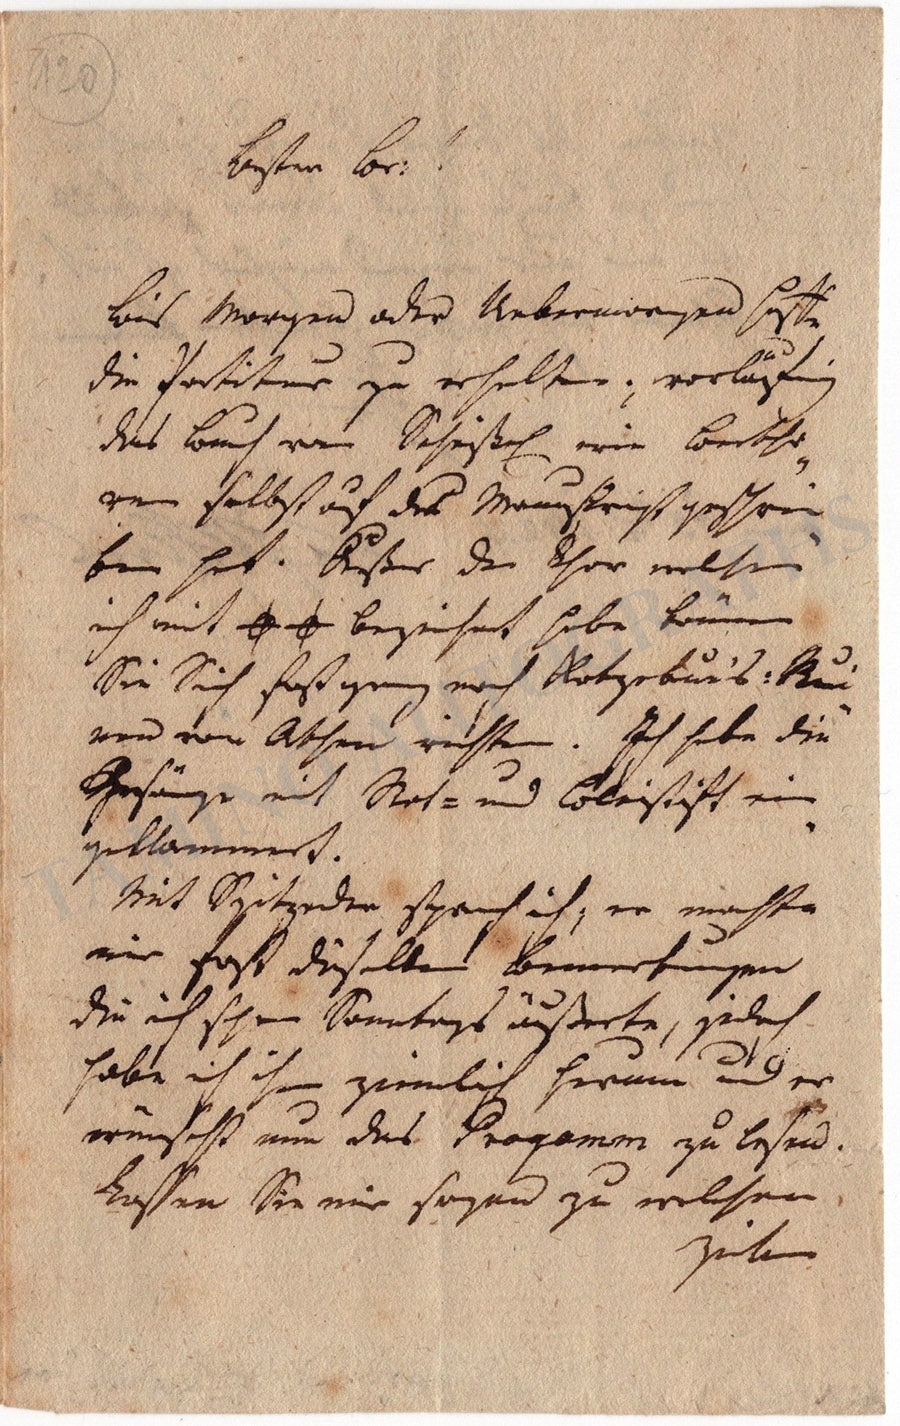 120
Bester Br: !
Bis Morgen oder Uebermorgen hoffe
die Partitur zu erhalten; vorläufig
das Buch von wie Beetho
ven selbst auf das Manuskript geschrie
ben hat. Außer den Chor welchen
ich mit bezeichnet habe können
Sie Sich fast ganz nach Kotzebue's: Rui
nen von Athen richten. Ich habe die
Gesänge mit Rot= und Bleistift ein
geklammert.
Mit Spitzeder sprach ich; er machte
mir fast dieselben Bemerkungen
die ich schon Sonntags äußerte, jedoch
habe ich ihn ziemlich herum und er
wünscht nun das Progamm zu lesen.
Lassen Sie mir sagen zu welchen